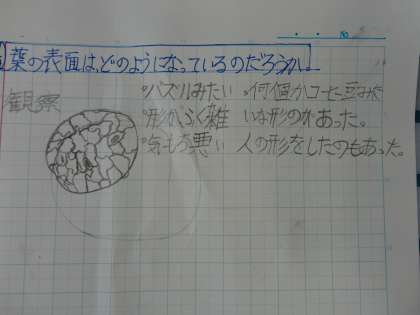 葉の表面は、どのようになっているのだろうか
観察
・パズルみたい ・何個かコーヒー豆みたい
・形がふく雑 いな形のがあった。
・気もち悪い 人の形をしたのもあった。